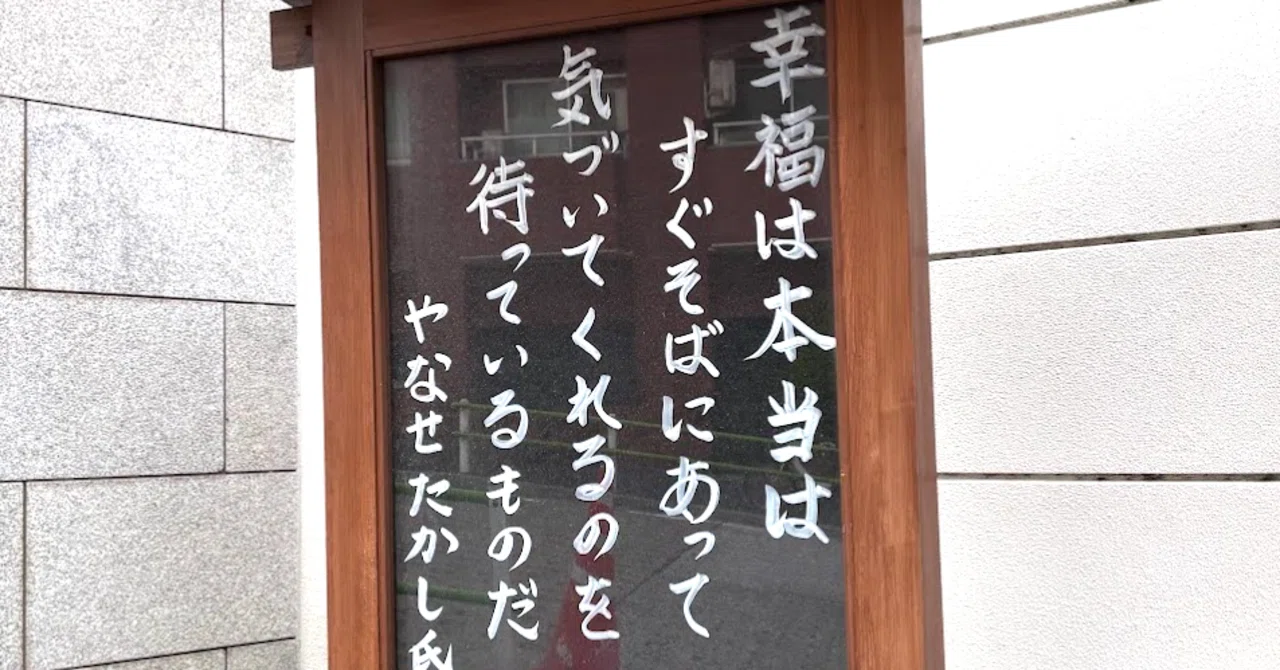 幸福は本当は
すぐそばにあって
気づいてくれるのを
待っているものだ
やなせたかし氏